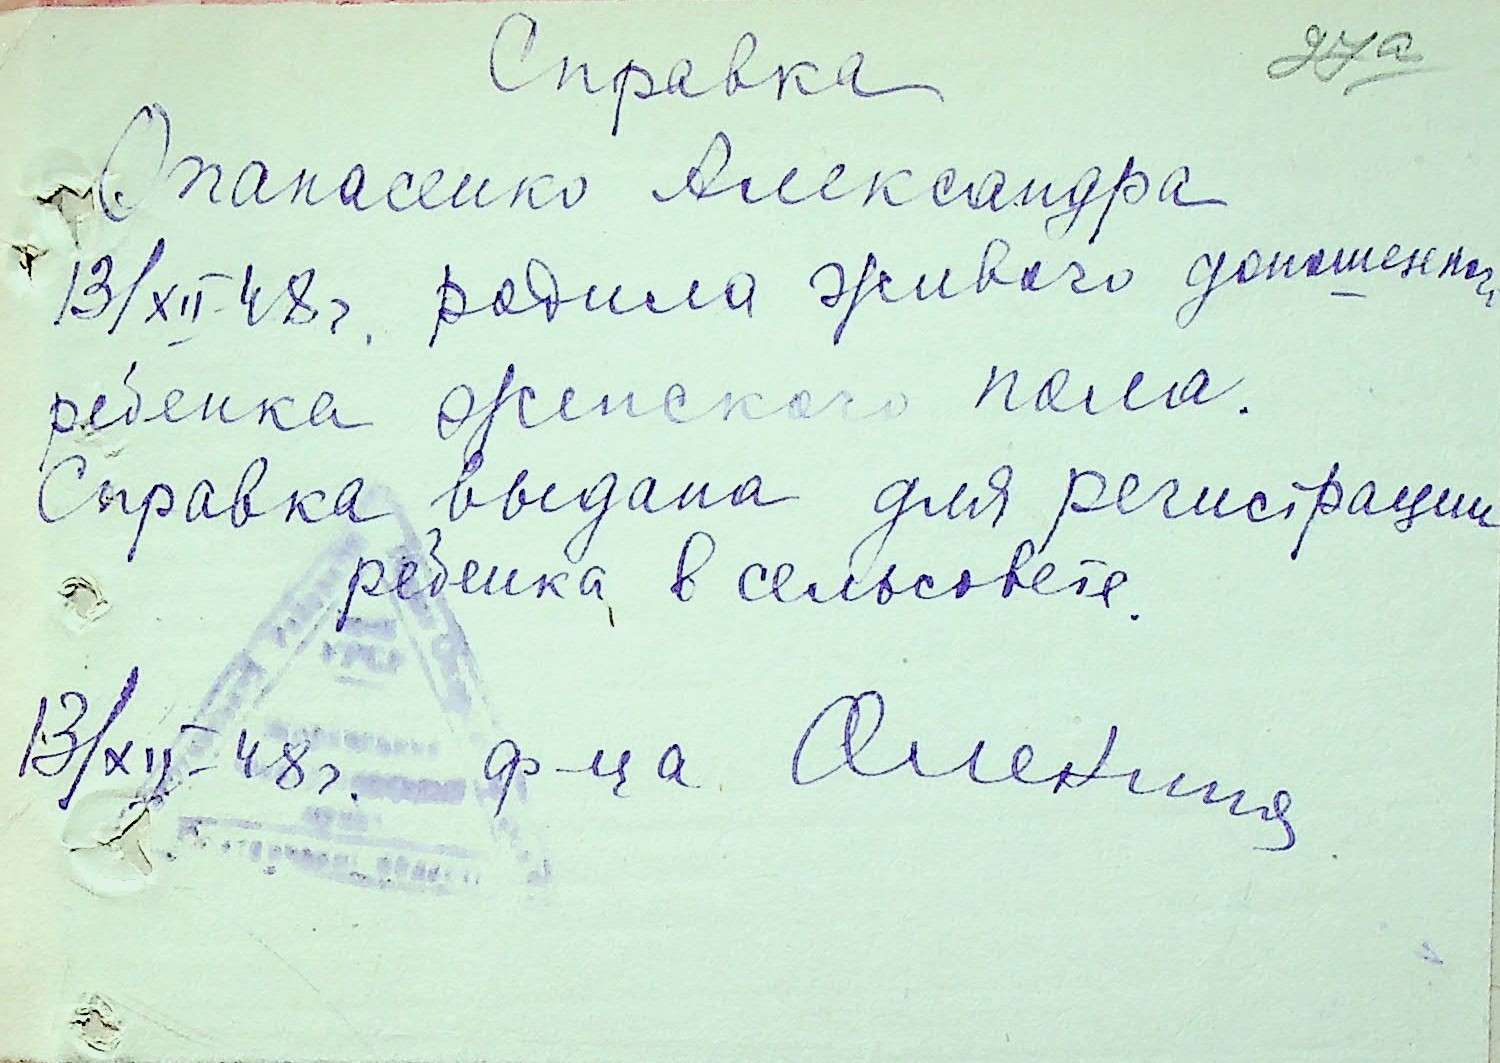 27а
Справка
Опанасенко Александра
13/XII-48г. родила живого доношенного
ребенка женского пола.
Справка выдана для регистрации
ребенка в сельсовете.
13/XII-48г. ф-ца